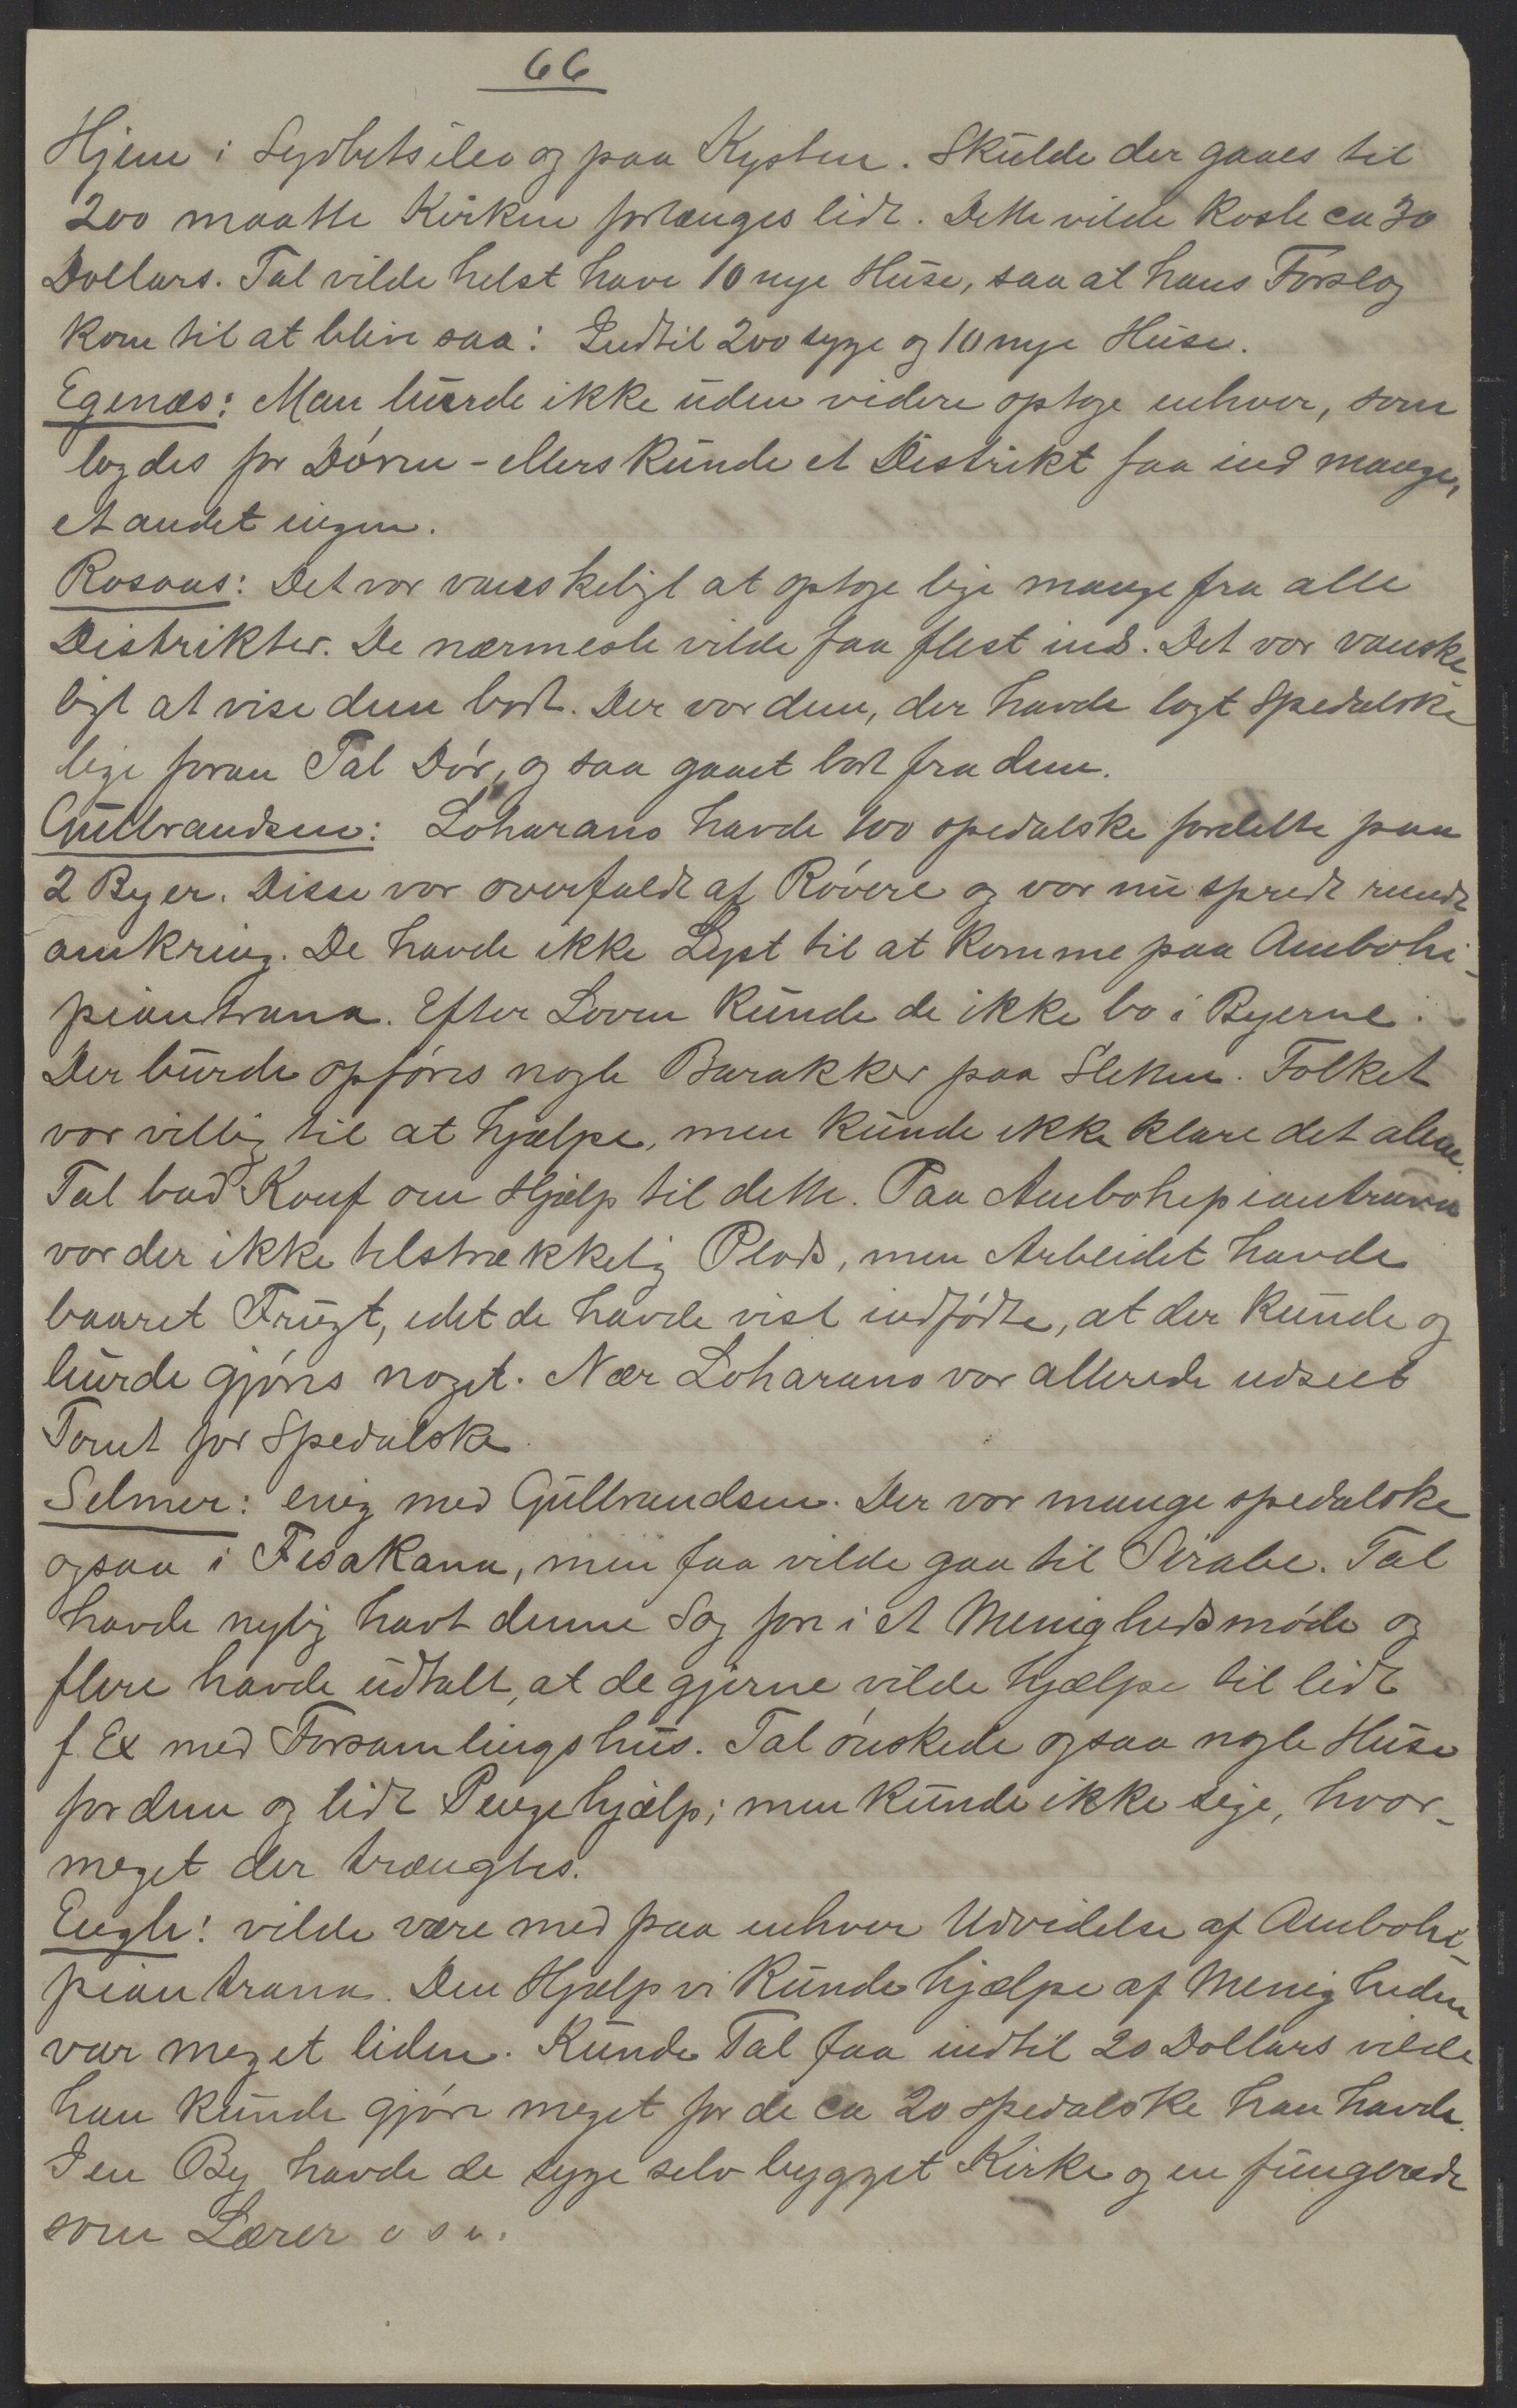 66
Hjem i Sydbetsileo og paa Kysten. Skulde der gaaes til
200 maatte Kirken forlænges lidt. Dette vilde koste ca 30
Dollars. Tal vilde helst have 10 nye Huse, saa at hans Forslag
kom til at blive saa: Indtil 200 syge og 10 nye Huse.
Egenæs: Man burde ikke uden videre optage enhver, som
lagdes for Døren - ellers kunde et Distrikt faa ind mange,
et andet ingen.
Rosaas: Det var vanskeligt at optage lige mange fra alle
Distrikter. De nærmeste vilde faa flest ind. Det var vanske-
ligt at vise dem bort. Der var dem, der havde lagt Spedalske
lige foran Tal Dør, og saa gaaet bort fra dem.
Gulbrandsen: Loharano havde 100 spedalske fordelte paa
2 Byer. Disse var overfaldt af Røvere og var nu spredt rundt
omkring. De havde ikke Lyst til at komme paa Ambohi-
piantrana. Efter Loven kunde de ikke bo i Byerne.
Der burde opføres nogle Barakker paa Sletten. Folket
var villig til at hjælpe, men kunde ikke klare det alene.
Tal bad Konf om Hjælp til dette. Paa Ambohipiantrana
var der ikke tilstrækkelig Plads, men Arbeidet havde
baaret Frugt, idet de havde vist indfødte, at der kunde og
burde gjøres noget. Nær Loharano var allerede udseet
Tomt for Spedalske.
Selmer: enig med Gulbrandsen. Der var mange spedalske
ogsaa i Fisakana, men faa vilde gaa til Sirabe. Tal
havde nylig havt denne Sag fore i et Menighedsmøde og
flere havde udtalt, at de gjerne vilde hjælpe til lidt
f. Ex med Forsamlingshus. Tal ønskede ogsaa nogle Huse
for dem og lidt Pengehjælp; men kunde ikke sige, hvor-
meget der trængtes.
Engh: vilde være med paa enhver Udvidelse af Ambohi-
piantrana. Den Hjælp vi kunde hjælpe af Menigheden
var meget liden. Kunde Tal faa indtil 20 Dollars vilde
han kunde gjøre meget for de ca 20 spedalske han havde.
I en By havde de syge selv bygget Kirke og en fungerede
som Lærer o s v.